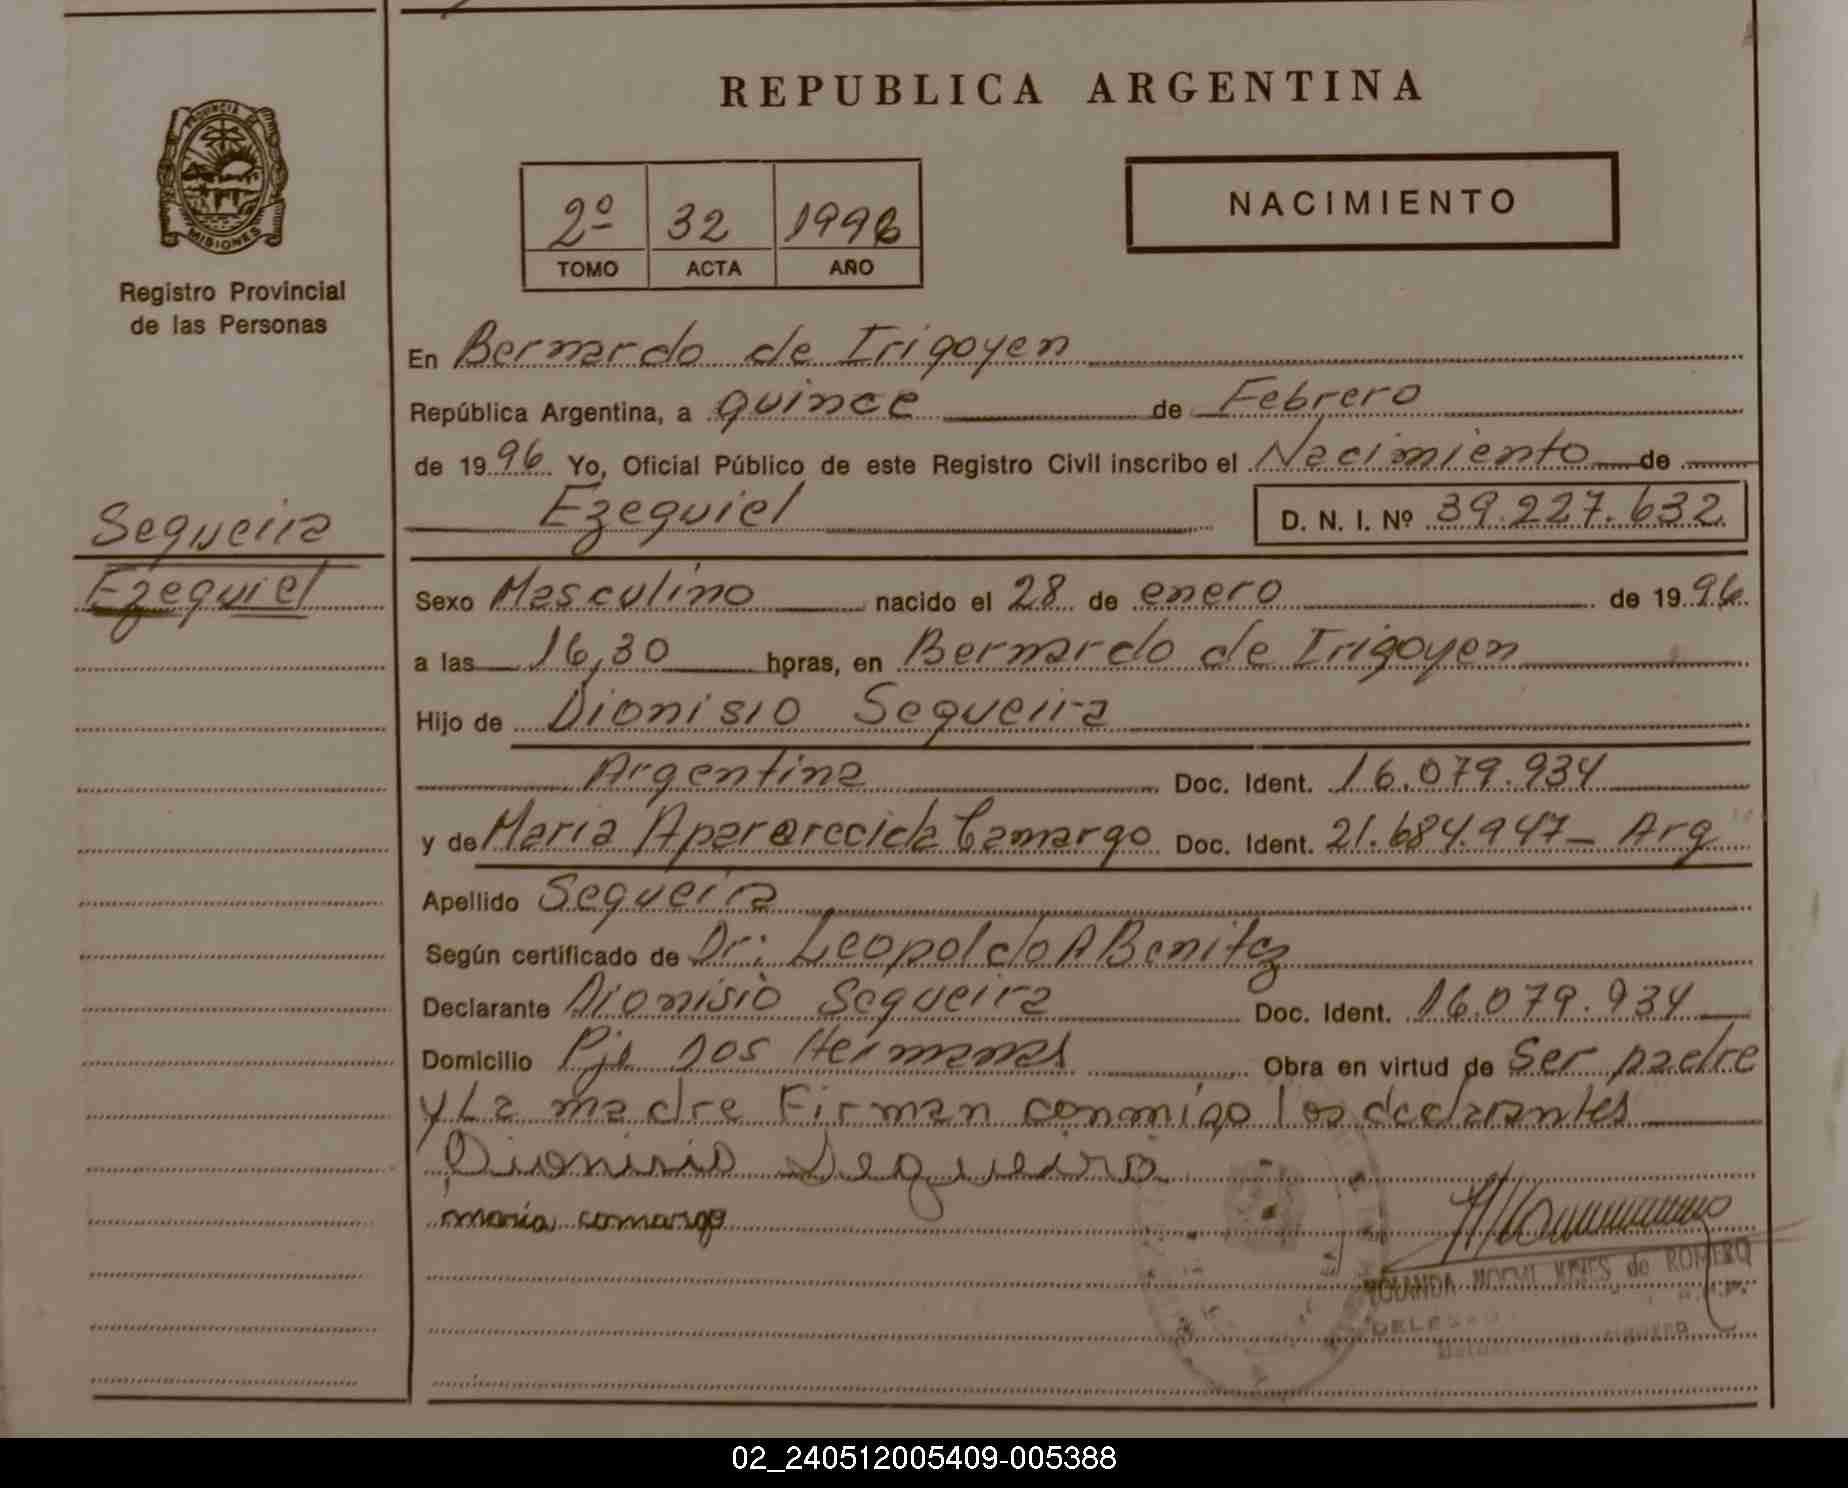 REPUBLICA ARGENTINA
PROVINCIA DE
MISIONES
Registro Provincial
de las Personas
2º 32 1996
TOMO ACTA AÑO
NACIMIENTO
Sequeira
Ezequiel
En Bernardo de Irigoyen
República Argentina, a quince de Febrero
de 1996 Yo, Oficial Público de este Registro Civil inscribo el Nacimiento de
Ezequiel D. N. I. Nº 39.227.632
Sexo Masculino nacido el 28 de enero de 1996
a las 16,30 horas, en Bernardo de Irigoyen
Hijo de Dionisio Sequeira
Argentina Doc. Ident. 16.079.934
y de Maria Apararecida Camargo Doc. Ident. 21.684.947- Arg
Apellido Sequeira
Según certificado de Dr: Leopoldo A Benitez
Declarante Dionisio Sequeira Doc. Ident. 16.079.934
Domicilio Pje Dos Hermanas Obra en virtud de Ser padre
y La madre Firman conmigo los declarantes
Dionisio Sequeira
maria camargo
YOLANDA NOEMI de ROMERO
02_240512005409-005388